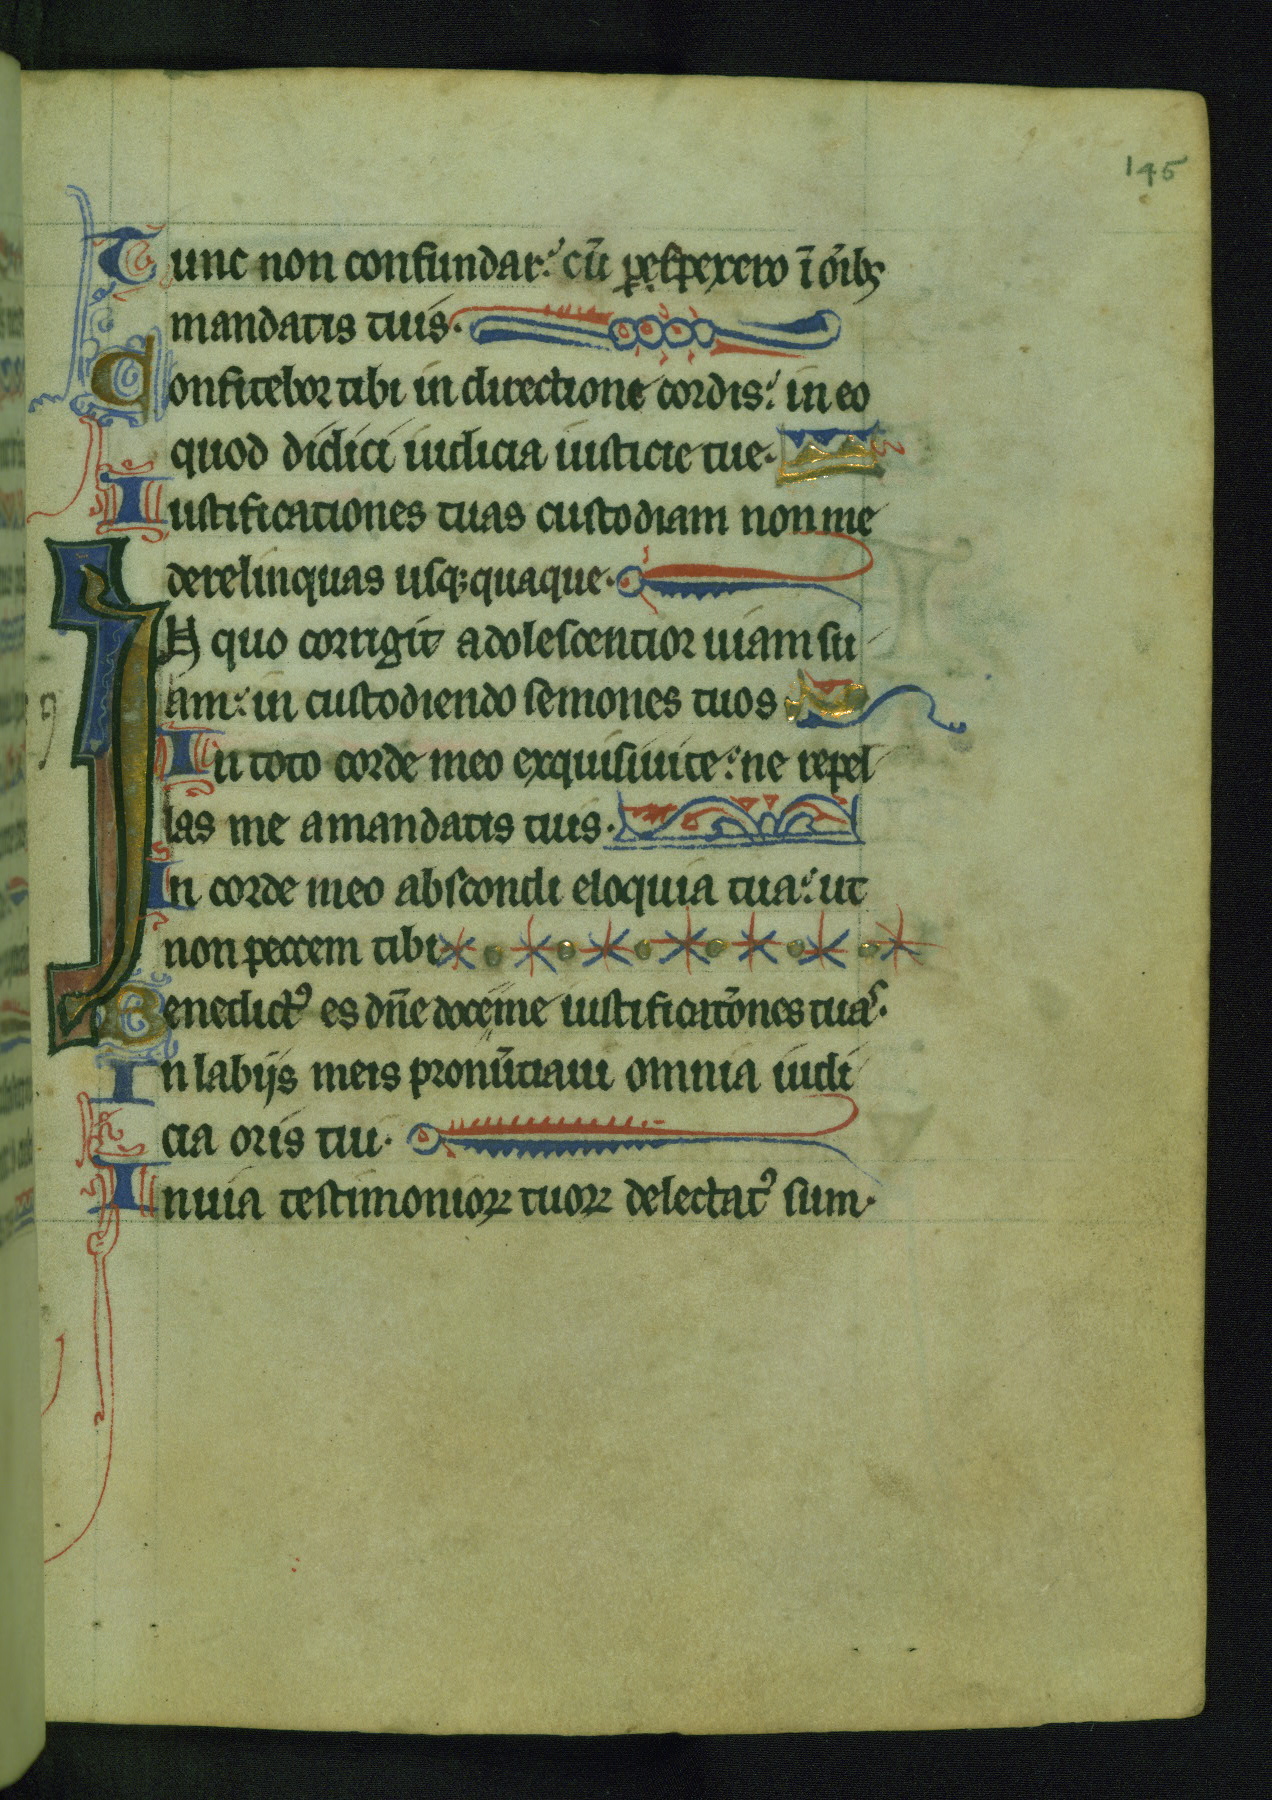 145
Tunc non confundar: cū ꝑspexero ī oīb;
mandatis tuis.
Confitebor tibi in directione cordis: in eo
quod didici iudicia iusticie tue.
Iustificationes tuas custodiam non me
derelinquas usq; quaque.
IN quo corrigit adolescentior uiam su
am: in custodiendo semones tuos
In toto corde meo exquisiui te: ne repel
las me a mandatis tuis.
In corde meo abscondi eloquia tua: ut
non peccem tibi
Benedictꝰ es dn̄e doce me iustificatōnes tuas.
In labijs meis pronūtiaui omnia iudi
cia oris tui.
In uia testimonioꝝ tuoꝝ delectatꝰ sum.